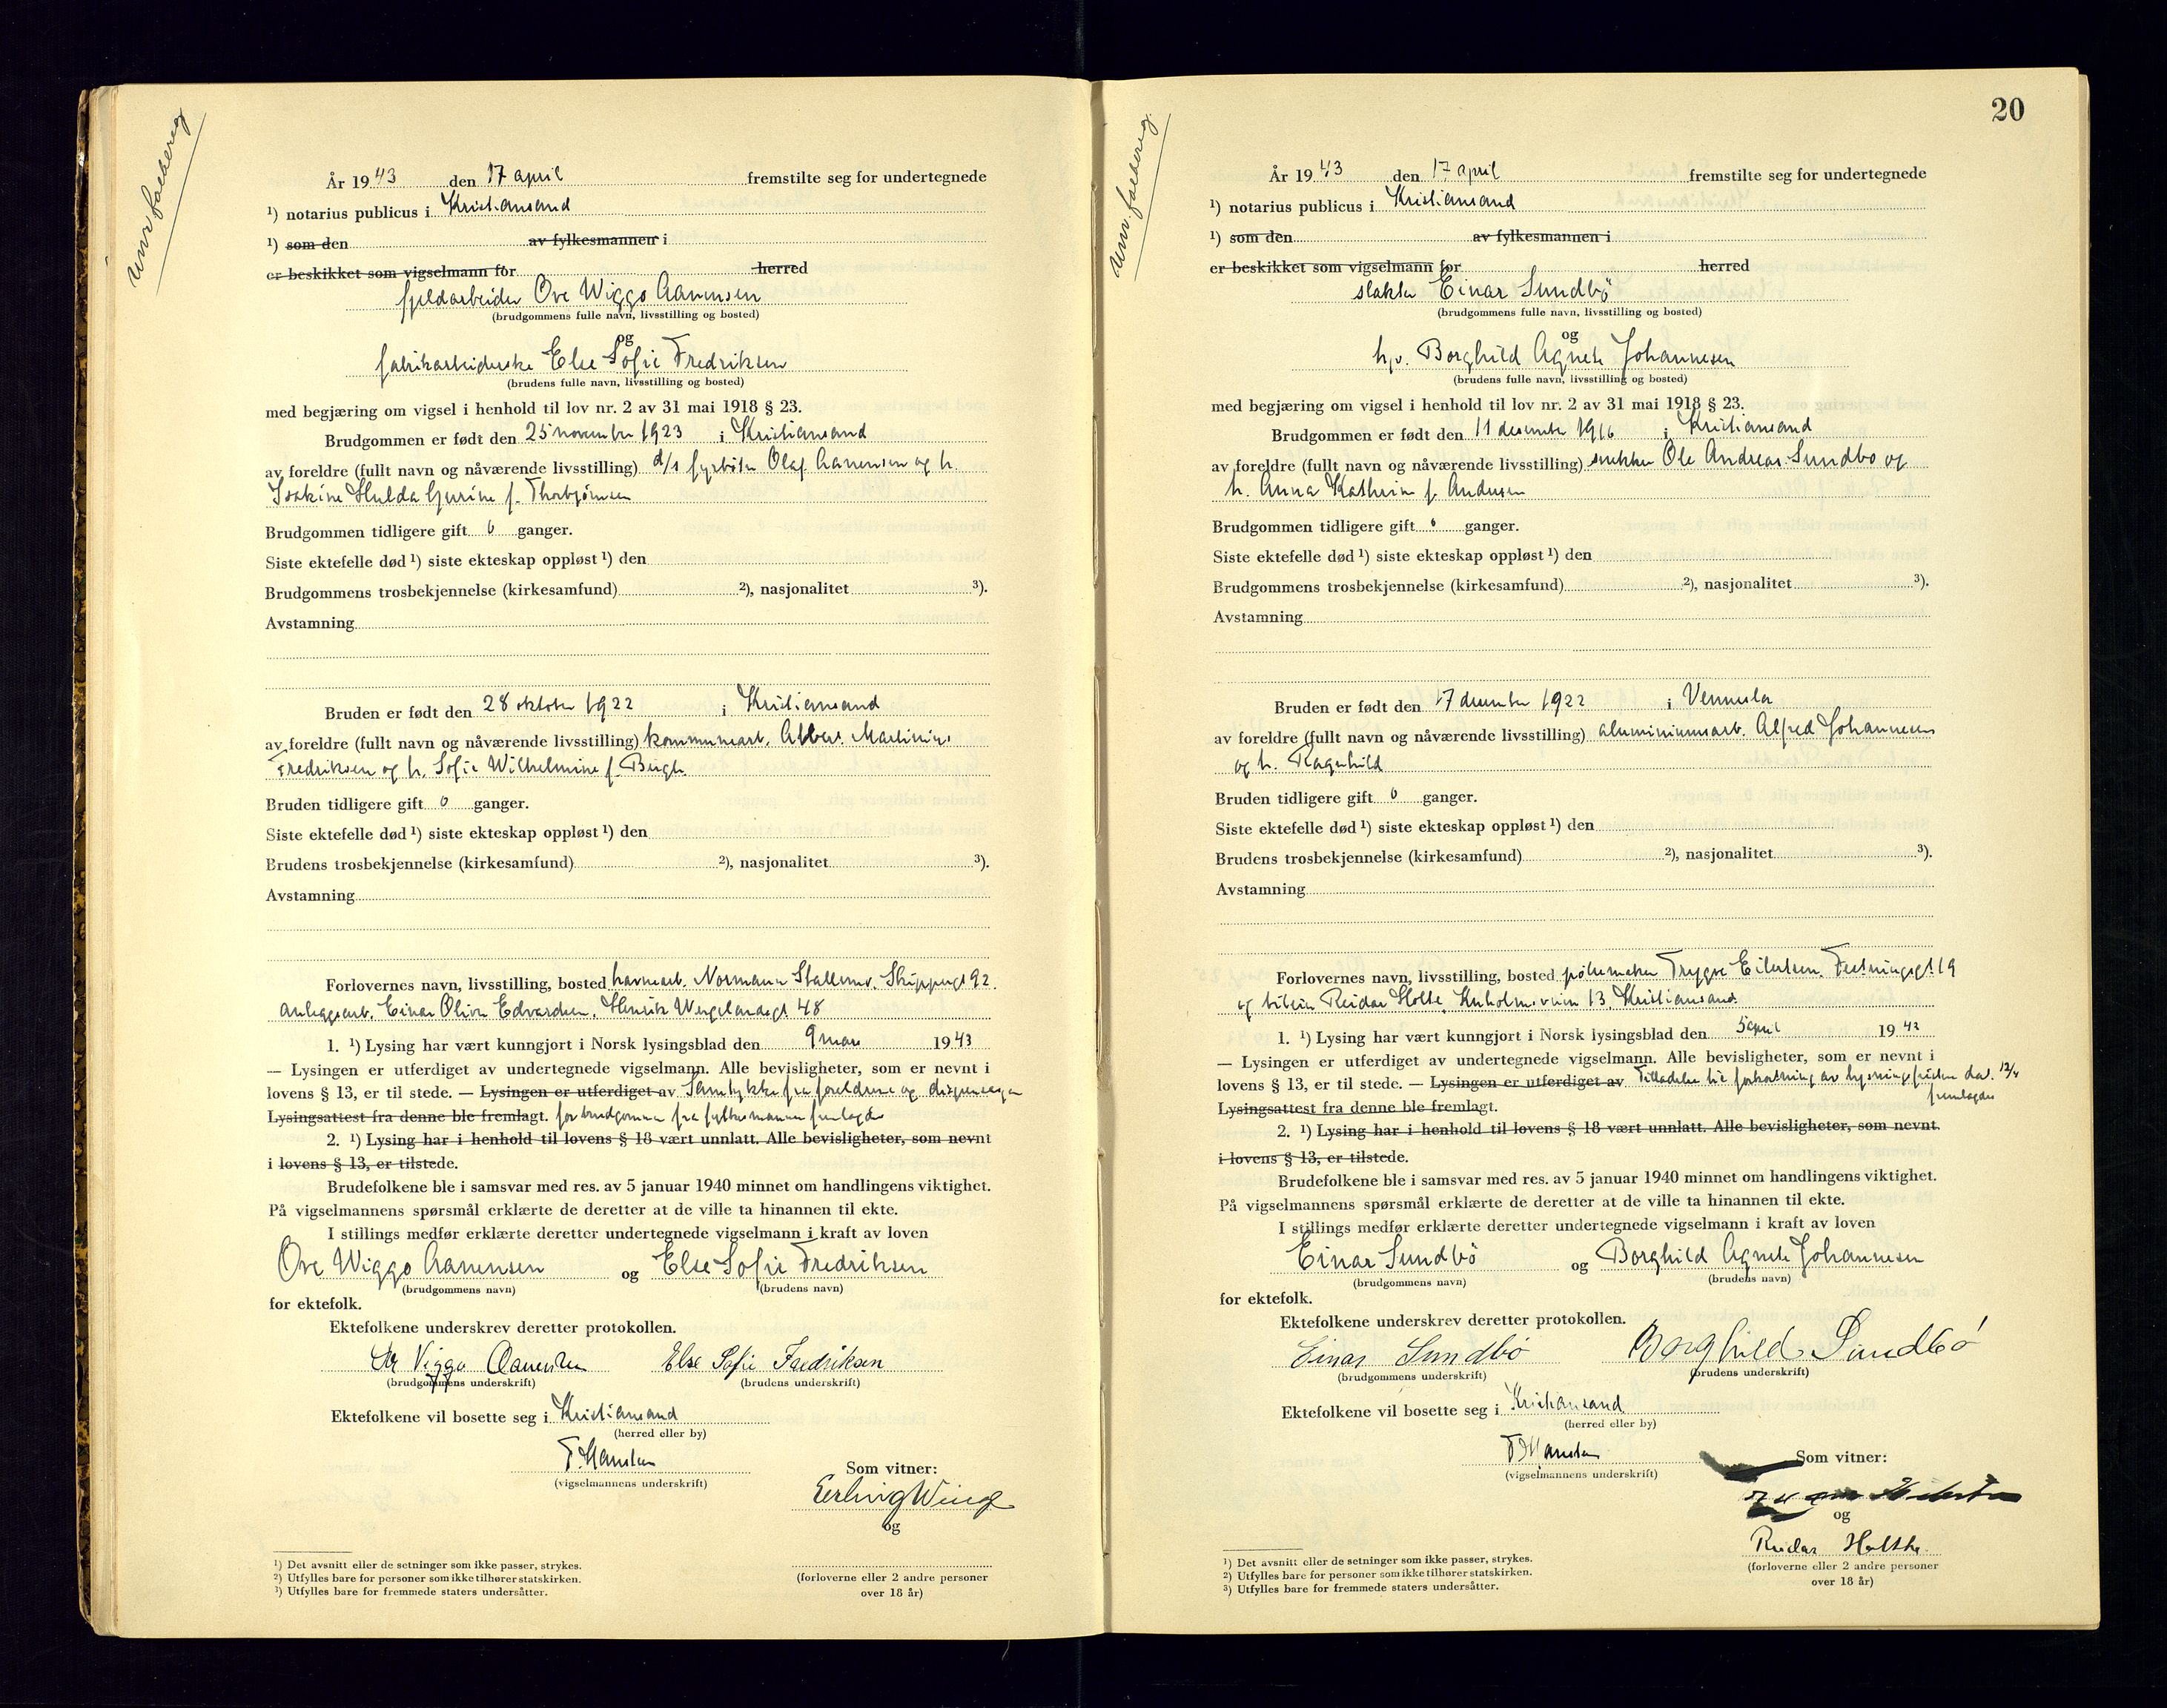 År 1943 den 17 april fremstilte seg for undertegnede
¹) notarius publicus i Kristiansand
¹) som den av fylkesmannen i
er beskikket som vigselmann for herred
Ove Wiggo Aanensen
(brudgommens fulle navn, livsstilling og bosted)
og
fabrikarbeiderske Else Sofie Fredriksen
(brudens fulle navn, livsstilling og bosted)
med begjæring om vigsel i henhold til lov nr. 2 av 31 mai 1918 § 23.
Brudgommen er født den 25 november 1923 i Kristiansand
av foreldre (fullt navn og nåværende livsstilling) d/s fyrbøter Olaf Aanensen og h.
Hulda Gurine f. Thorbjørnsen
Brudgommen tidligere gift 0 ganger.
Siste ektefelle død ¹) siste ekteskap oppløst ¹) den
Brudgommens trosbekjennelse (kirkesamfund) ²), nasjonalitet ³).
Avstamning
Bruden er født den 28 oktober 1922 i Kristiansand
av foreldre (fullt navn og nåværende livsstilling) kommunearb. Albert Martinius
Fredriksen og h. Sofie Wilhelmine f. Bergh.
Bruden tidligere gift 0 ganger.
Siste ektefelle død ¹) siste ekteskap oppløst ¹) den
Brudens trosbekjennelse (kirkesamfund) ²), nasjonalitet ³).
Avstamning
Forlovernes navn, livsstilling, bosted havnearb. Normann Skippergt 92.
anleggsarb. Einar Oliver Edvardsen, Henrik Wergelandsgt. 48
1. ¹) Lysing har vært kunngjort i Norsk lysingsblad den 9 mars 1943
— Lysingen er utferdiget av undertegnede vigselmann. Alle bevisligheter, som er nevnt i
lovens § 13, er til stede. — Lysingen er utferdiget av Samtykke fra foreldrene og dispensasjon
Lysingsattest fra denne ble fremlagt. for brudgommen fra fylkesmannen fremlagdes
2. ¹) Lysing har i henhold til lovens § 18 vært unnlatt. Alle bevisligheter, som nevnt
i lovens § 13, er tilstede.
Brudefolkene ble i samsvar med res. av 5 januar 1940 minnet om handlingens viktighet.
På vigselmannens spørsmål erklærte de deretter at de ville ta hinannen til ekte.
I stillings medfør erklærte deretter undertegnede vigselmann i kraft av loven
Ove Wiggo Aanensen og Else Sofie Fredriksen
(brudgommens navn) (brudens navn)
for ektefolk.
Ektefolkene underskrev deretter protokollen.
Viggo Aanensen Else Sofie Fredriksen
(brudgommens underskrift) (brudens underskrift)
Ektefolkene vil bosette seg i Kristiansand
(herred eller by)
T. Hansen
(vigselmannens underskrift)
Som vitner:
Erling Winge
og
(forloverne eller 2 andre personer
over 18 år)
¹) Det avsnitt eller de setninger som ikke passer, strykes.
²) Utfylles bare for personer som ikke tilhører statskirken.
³) Utfylles bare for fremmede staters undersåtter.
20
År 1943 den 17 april fremstilte seg for undertegnede
¹) notarius publicus i Kristiansand
¹) som den av fylkesmannen i
er beskikket som vigselmann for herred
slakter Einar Sundbö
(brudgommens fulle navn, livsstilling og bosted)
og
h.v. Borghild Agnete Johannesen
(brudens fulle navn, livsstilling og bosted)
med begjæring om vigsel i henhold til lov nr. 2 av 31 mai 1918 § 23.
Brudgommen er født den 11 desember 1916 i Kristiansand
av foreldre (fullt navn og nåværende livsstilling) snekker Ole Andreas Sundbö og
h. Anna Kathrine f. Andersen
Brudgommen tidligere gift 0 ganger.
Siste ektefelle død ¹) siste ekteskap oppløst ¹) den
Brudgommens trosbekjennelse (kirkesamfund) ²), nasjonalitet ³).
Avstamning
Bruden er født den 17 desember 1922 i Vennesla
av foreldre (fullt navn og nåværende livsstilling) aluminiumsarb. Alfred Johannesen
og h. Ragnhild
Bruden tidligere gift 0 ganger.
Siste ektefelle død ¹) siste ekteskap oppløst ¹) den
Brudens trosbekjennelse (kirkesamfund) ²), nasjonalitet ³).
Avstamning
Forlovernes navn, livsstilling, bosted pølsemaker Trygve Eilertsen, Festningsgt 19
og Reidar Holte, Kuholmsveien 13, Kristiansand.
1. ¹) Lysing har vært kunngjort i Norsk lysingsblad den 5 april 1943
— Lysingen er utferdiget av undertegnede vigselmann. Alle bevisligheter, som er nevnt i
lovens § 13, er til stede. — Lysingen er utferdiget av Tilladelse til forkortning av lysningsfristen dat. 12/4
Lysingsattest fra denne ble fremlagt. fremlagdes
2. ¹) Lysing har i henhold til lovens § 18 vært unnlatt. Alle bevisligheter, som nevnt.
i lovens § 13, er tilstede.
Brudefolkene ble i samsvar med res. av 5 januar 1940 minnet om handlingens viktighet.
På vigselmannens spørsmål erklærte de deretter at de ville ta hinannen til ekte.
I stillings medfør erklærte deretter undertegnede vigselmann i kraft av loven
Einar Sundbö og Borghild Agnete Johannesen
(brudgommens navn) (brudens navn)
for ektefolk.
Ektefolkene underskrev deretter protokollen.
Einar Sundbö Borghild Sundbö
(brudgommens underskrift) (brudens underskrift)
Ektefolkene vil bosette seg i Kristiansand
(herred eller by)
T Hansen
(vigselmannens underskrift)
Som vitner:
og
Reidar Holthe
(forloverne eller 2 andre personer
over 18 år)
¹) Det avsnitt eller de setninger som ikke passer, strykes.
²) Utfylles bare for personer som ikke tilhører statskirken.
³) Utfylles bare for fremmede staters undersåtter.